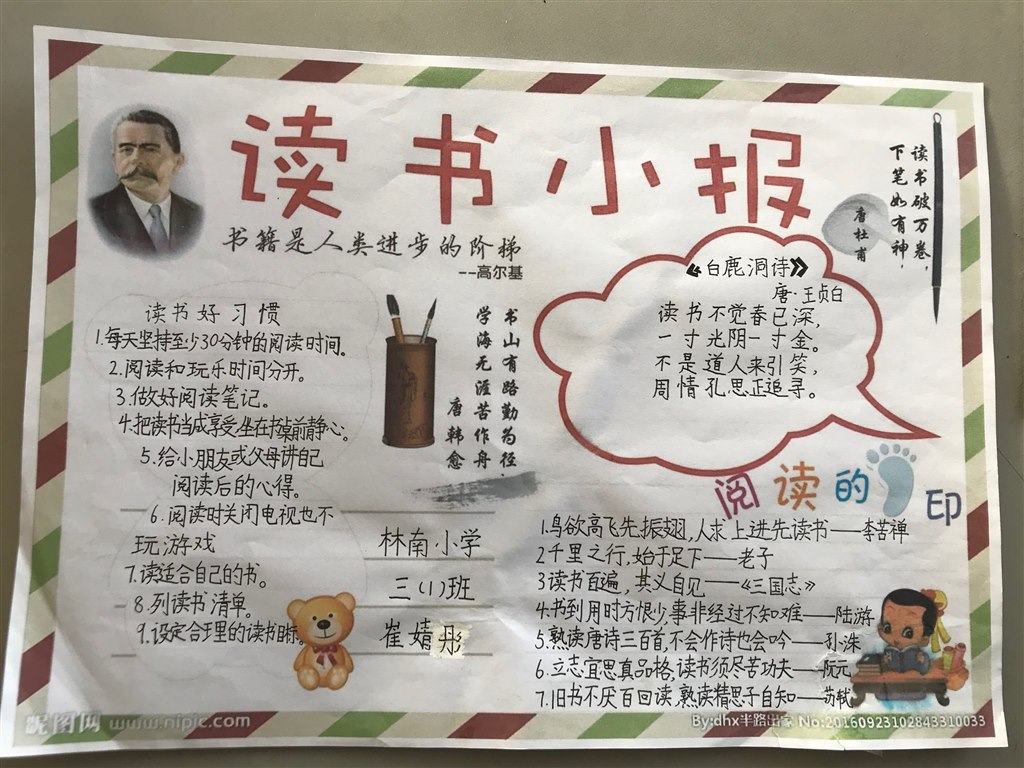 读书小报
书籍是人类进步的阶梯
--高尔基
读书破万卷，
下笔如有神，
唐杜甫
《白鹿洞诗》
唐·王贞白
读书不觉春已深，
一寸光阴一寸金。
不是道人来引笑，
周情孔思正追寻。
读书好习惯
1.每天坚持至少30分钟的阅读时间。
2.阅读和玩乐时间分开。
3.做好阅读笔记。
4.把读书当成享受坐在书桌前静心。
5.给小朋友或父母讲自己
阅读后的心得。
6.阅读时关闭电视也不
玩游戏
7.读适合自己的书。
8.列读书清单。
9.设定合理的读书目标
书山有路勤为径
学海无涯苦作舟
唐韩愈
林南小学
三(1)班
崔婧彤
阅读的
印
1.鸟欲高飞先振翅,人求上进先读书——李苦禅
2千里之行,始于足下——老子
3读书百遍，其义自见——《三国志》
4.书到用时方恨少,事非经过不知难——陆游
5.熟读唐诗三百首,不会作诗也会吟——孙洙
6.立志宜思真品格,读书须尽苦功夫——阮元
7.旧书不厌百回读,熟读精思子自知——苏轼
昵图网 www.nipic.com
By:dhx半路出家 No:20160923102843310033